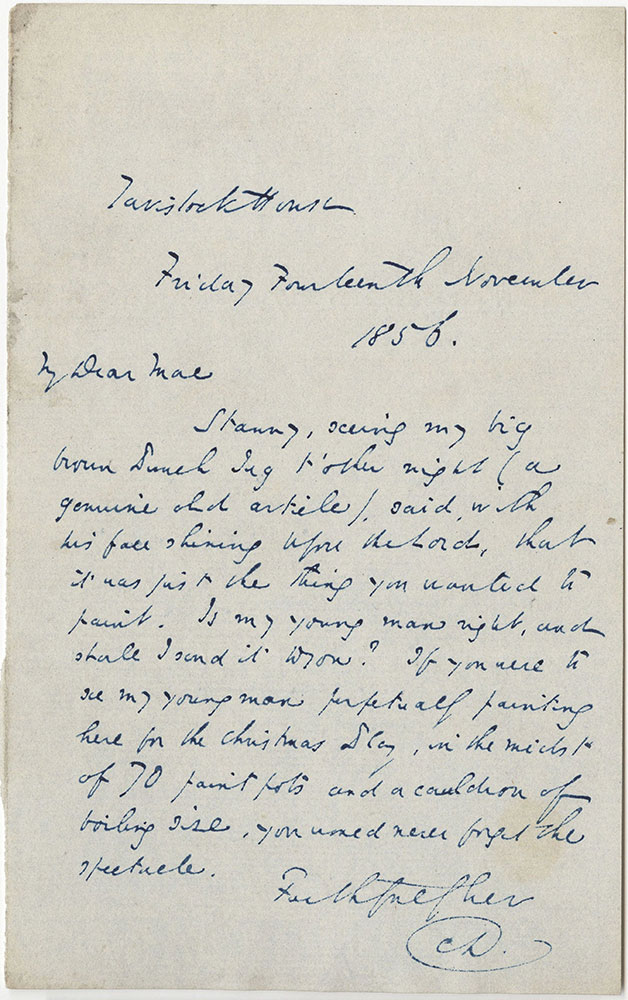 Tavistock House
Friday Fourteenth November
1856.
My Dear Mac
Stanny, seeing my big
brown Dutch Jug t'other night (a
genuine old article), said, with
his face shining upon the Lord, that
it was just the thing you wanted to
paint. Is my young man right, and
shall I send it you? If you were to
see my young man perpetually painting
here for the Christmas Play, in the midst
of 70 paint pots and a cauldron of
boiling size, you would never forget the
spectacle.
Faithfully Ever
CD.